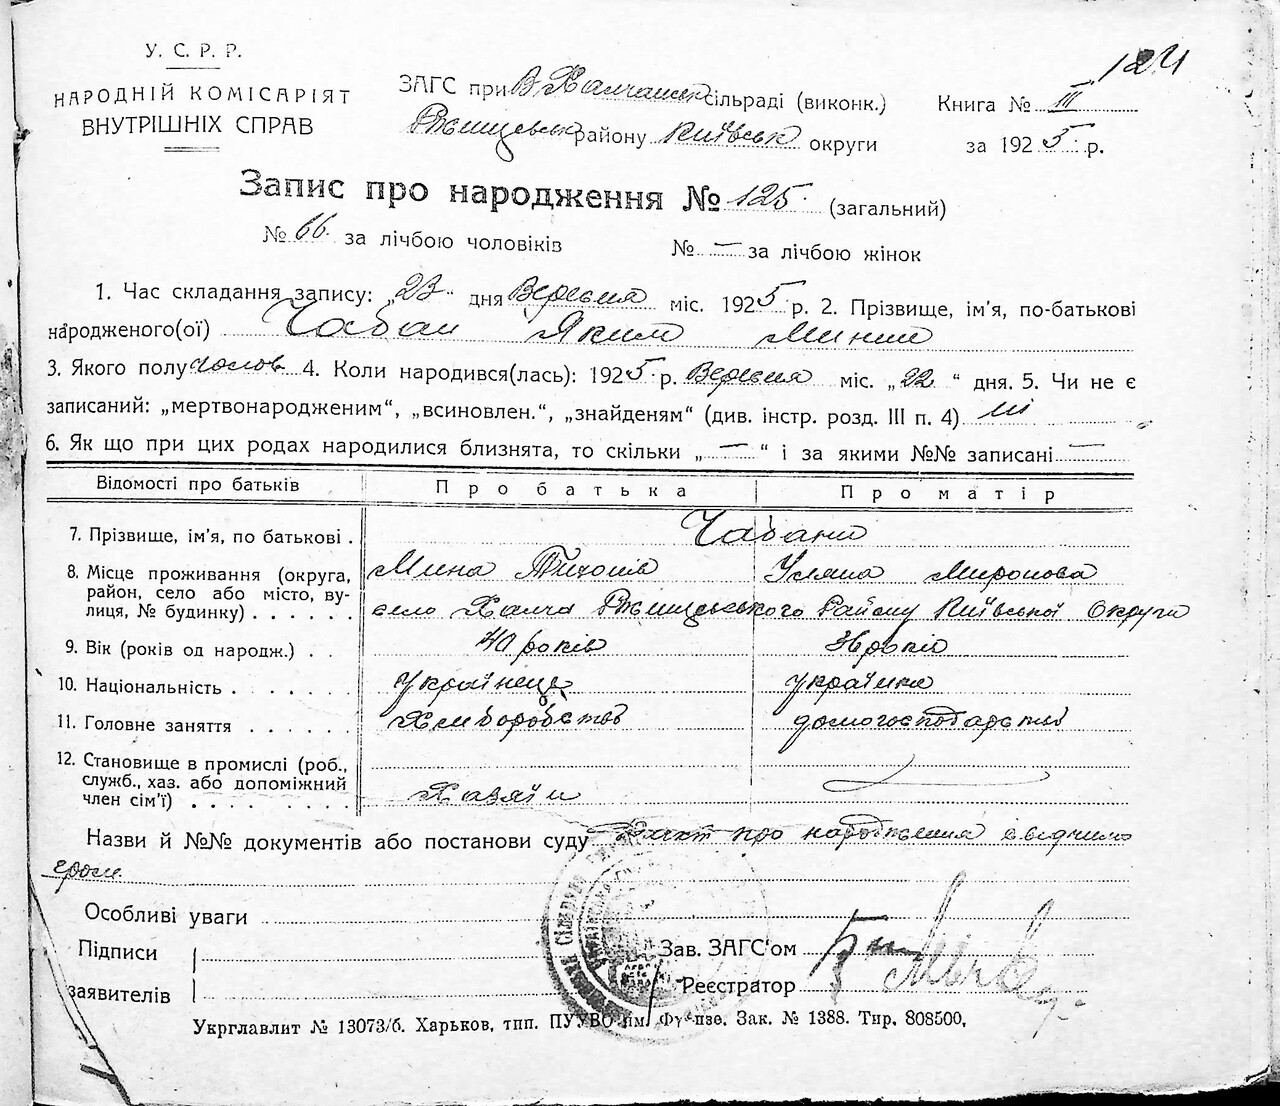 124
У. С. Р. Р.
НАРОДНІЙ КОМІСАРІЯТ
ВНУТРІШНІХ СПРАВ
ЗАГС при сільраді (виконк.)
району Київськ округи
Книга № III
за 1925 р.
Запис про народження № 125 (загальний)
№ 66 за лічбою чоловіків № — за лічбою жінок
1. Час складання запису: „23" дня Вересня міс. 1925 р. 2. Прізвище, ім'я, по-батькові
народженого(ої) Чабан Яким
3. Якого полу чолов 4. Коли народився(лась): 1925 р. Вересня міс. „22" дня. 5. Чи не є
записаний: „мертвонародженим", „всиновлен.", „знайденям" (див. інстр. розд. III п. 4)
6. Як що при цих родах народилися близнята, то скільки „—" і за якими №№ записані —
Відомості про батьків Про батька Про матір
7. Прізвище, ім'я, по батькові . Чабани
Мина Уляна Миронова
8. Місце проживання (округа,
район, село або місто, ву-
лиця, № будинку) . . . . . . село Халча Ржищевського Району Київської Округи
9. Вік (років од народж.) . . 40 років 36 років
10. Національність . . . . . . . Українець українка
11. Головне заняття . . . . . . Хліборобство домогосподарство
12. Становище в промислі (роб.,
служб., хаз. або допоміжний
член сім'ї) . . . . . . . . Хазяїн
Назви й №№ документів або постанови суду про народження
Особливі уваги
Підписи
заявителів
Зав. ЗАГС'ом
Реєстратор
Укрглавлит № 13073/б. Харьков, тип. ПУУВО им. Фрунзе. Зак. № 1388. Тир. 808500.